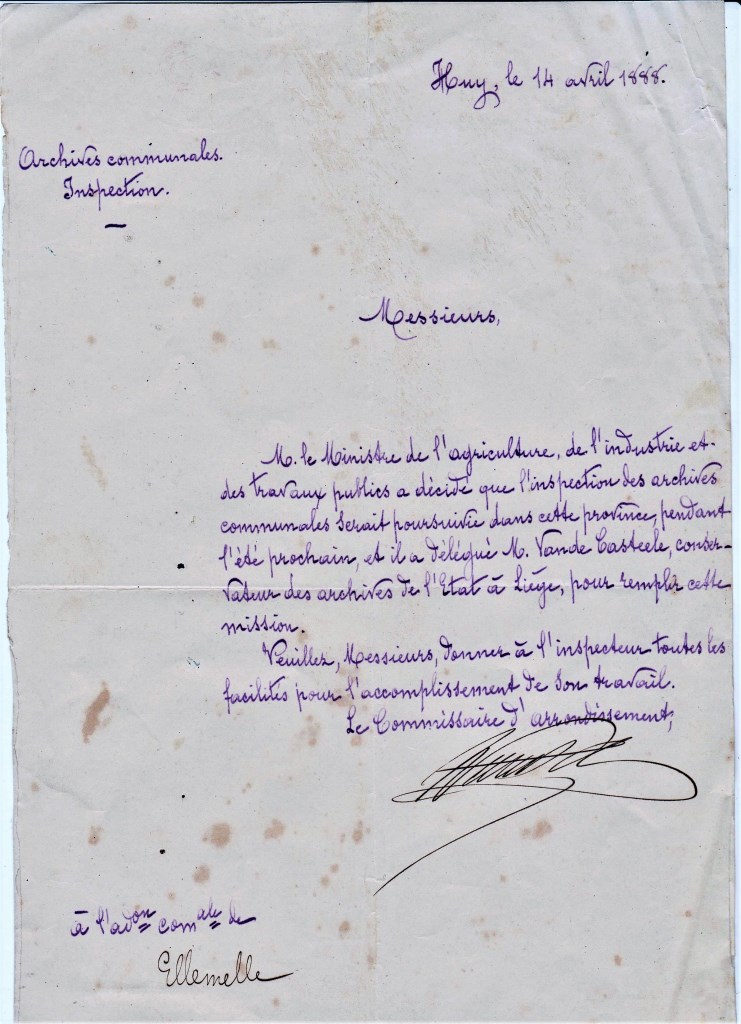 Huy, le 14 avril 1888.
Archives communales.
Inspection.
Messieurs,
M. le Ministre de l'agriculture, de l'industrie et
des travaux publics a décidé que l'inspection des archives
communales serait poursuivie dans cette province, pendant
l'été prochain, et il a délégué M. Van de Casteele, conser-
vateur des archives de l'Etat à Liége, pour remplir cette
mission.
Veuillez, Messieurs, donner à l'inspecteur toutes les
facilités pour l'accomplissement de son travail.
Le Commissaire d'arrondissement,
à l'adon comale de
Ellemelle